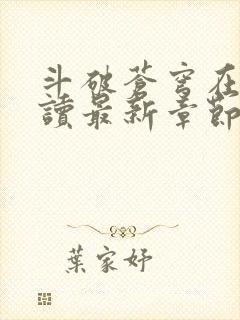 斗破蒼穹在
讀最新章節
葉家妤